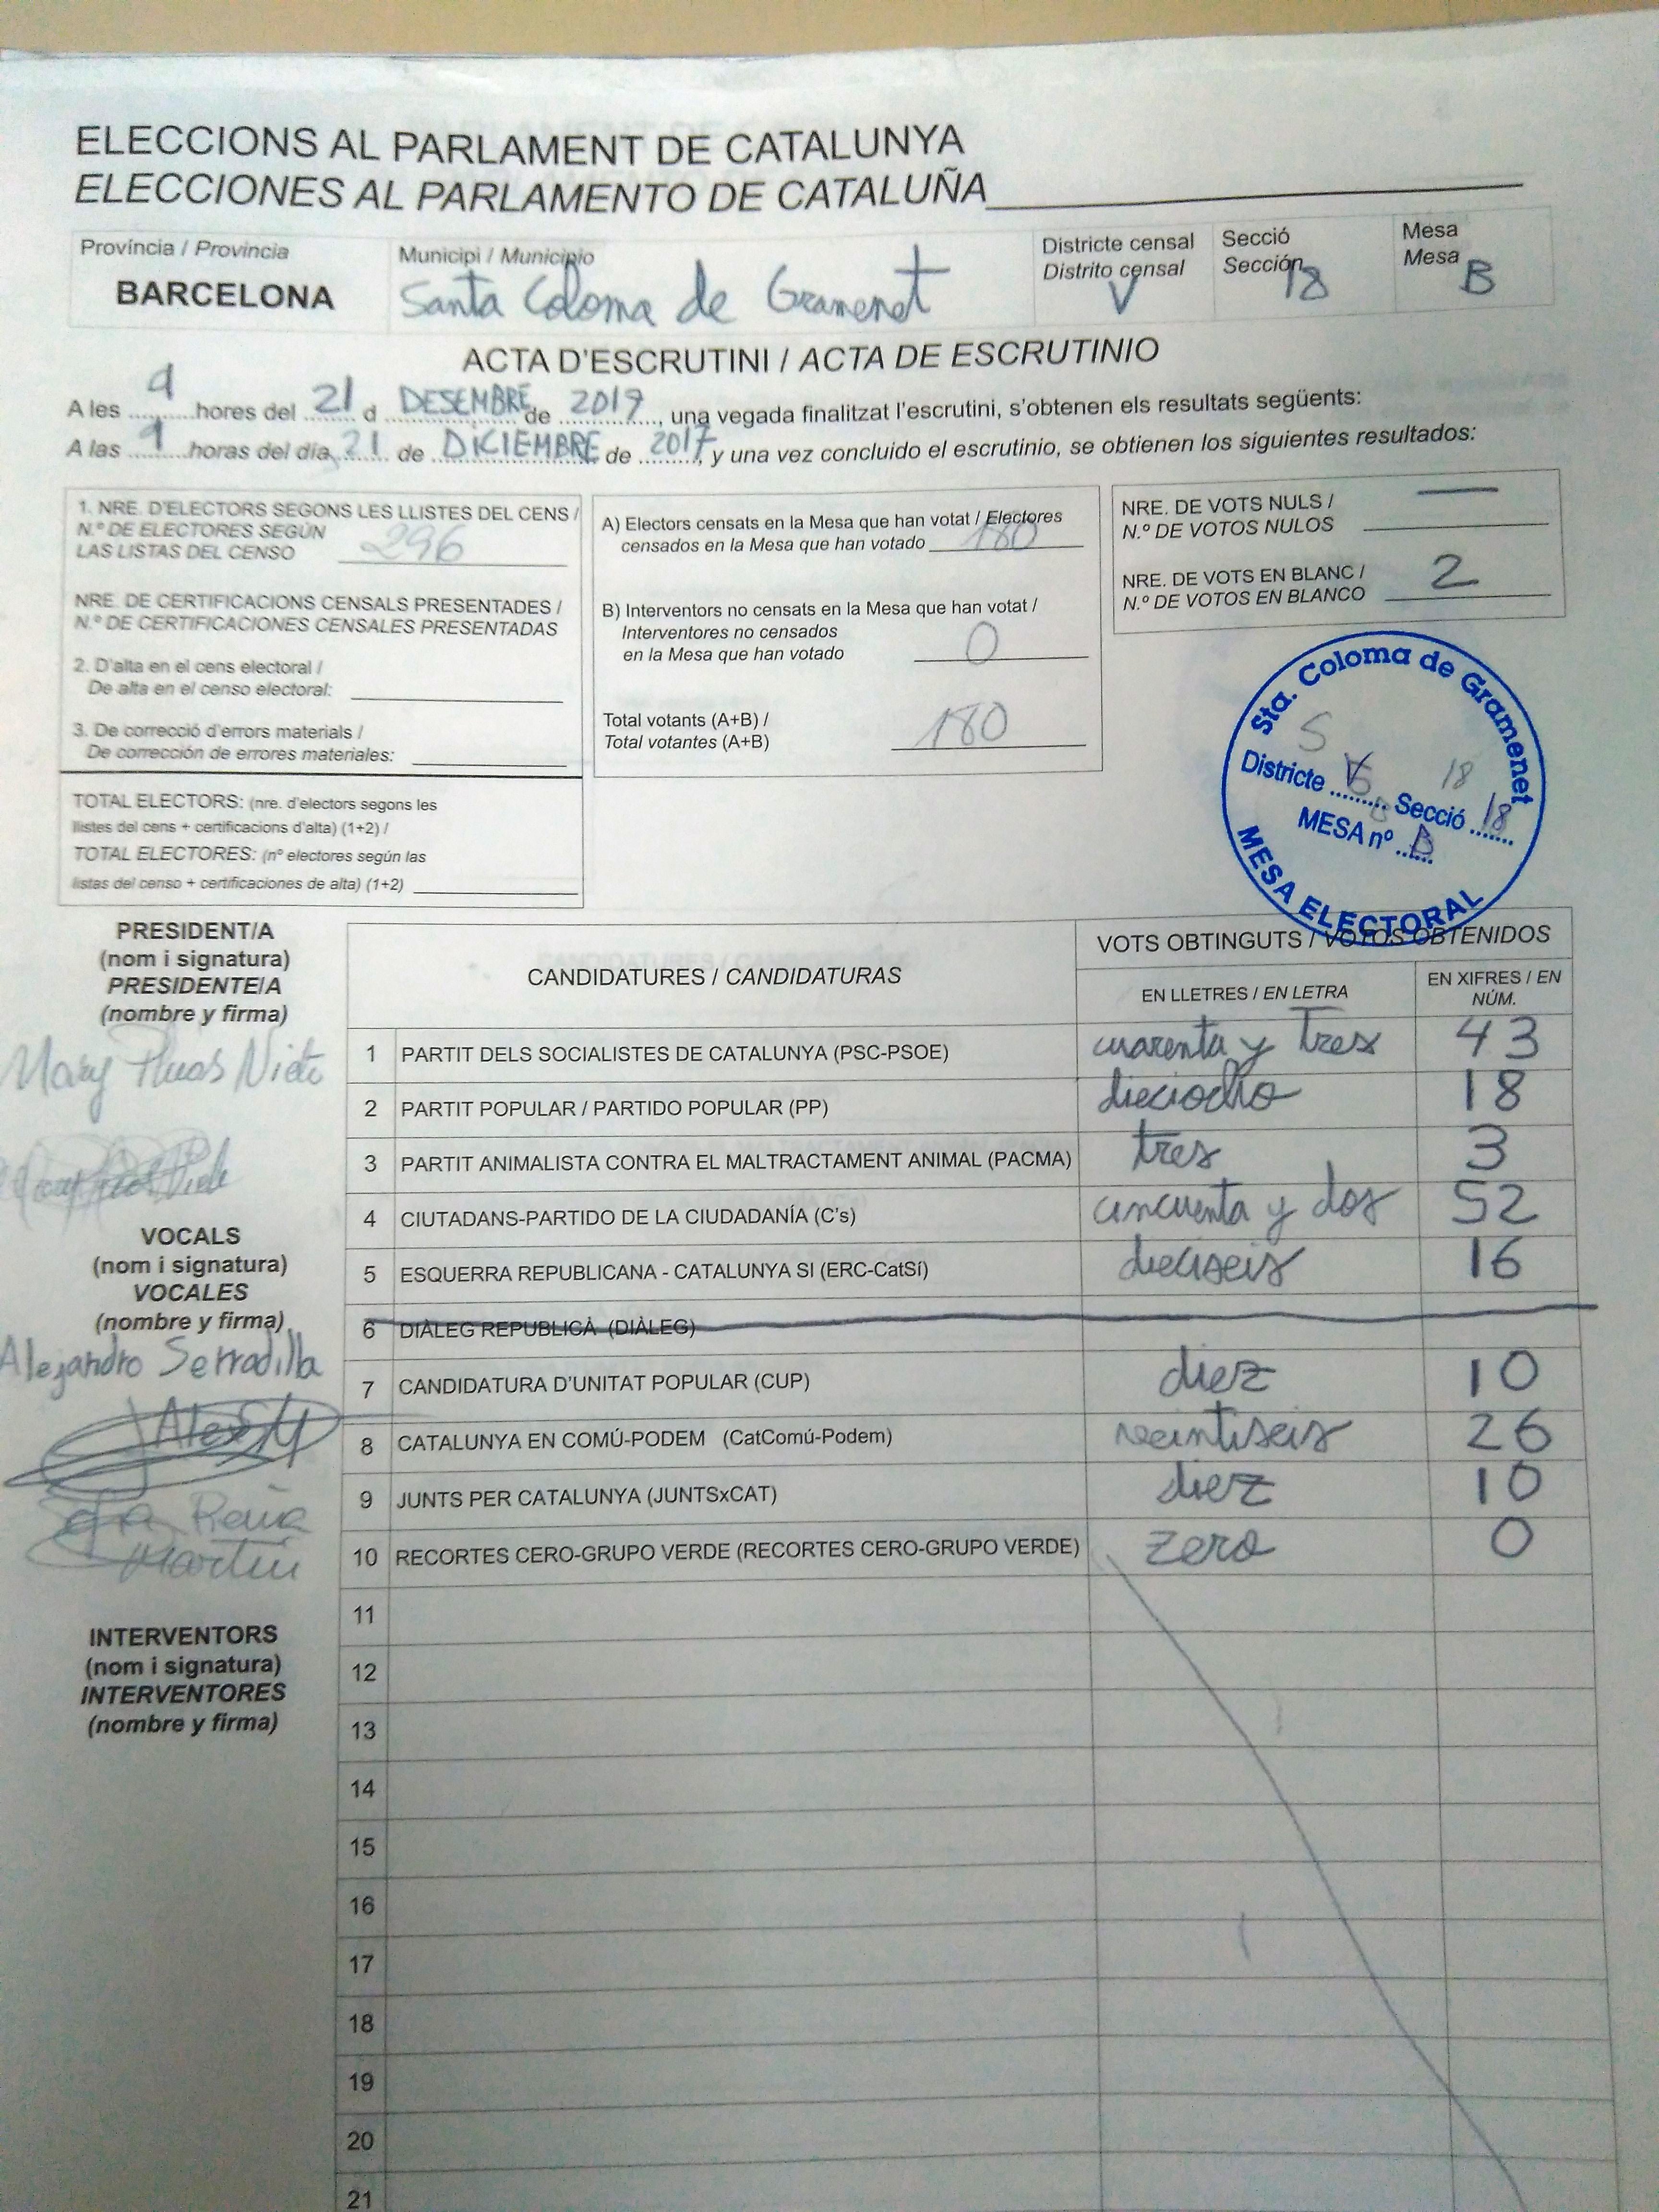 ELECCIONS AL PARLAMENT DE CATALUNYA
ELECCIONES AL PARLAMENTO DE CATALUÑA
Província / Provincia
BARCELONA
Municipi / Municipio
Santa Coloma de Gramenet
Districte censal
Distrito censal
V
Secció
Sección
18
Mesa
Mesa
B
ACTA D'ESCRUTINI / ACTA DE ESCRUTINIO
A les 9 hores del 21 d DESEMBRE de 2017, una vegada finalitzat l'escrutini, s'obtenen els resultats següents:
A las 9 horas del día 21 de DICIEMBRE de 2017, y una vez concluido el escrutinio, se obtienen los siguientes resultados:
1. NRE. D'ELECTORS SEGONS LES LLISTES DEL CENS /
N.º DE ELECTORES SEGÚN
LAS LISTAS DEL CENSO 296
NRE. DE CERTIFICACIONS CENSALS PRESENTADES /
N.º DE CERTIFICACIONES CENSALES PRESENTADAS
2. D'alta en el cens electoral /
De alta en el censo electoral:
3. De correcció d'errors materials /
De corrección de errores materiales:
TOTAL ELECTORS: (nre. d'electors segons les
llistes del cens + certificacions d'alta) (1+2) /
TOTAL ELECTORES: (nº electores según las
listas del censo + certificaciones de alta) (1+2)
A) Electors censats en la Mesa que han votat / Electores
censados en la Mesa que han votado 180
B) Interventors no censats en la Mesa que han votat /
Interventores no censados
en la Mesa que han votado 0
Total votants (A+B) /
Total votantes (A+B) 180
NRE. DE VOTS NULS /
N.º DE VOTOS NULOS —
NRE. DE VOTS EN BLANC /
N.º DE VOTOS EN BLANCO 2
Sta. Coloma de Gramenet
S 18
Districte V Secció 18
MESA nº B
MESA ELECTORAL
PRESIDENT/A
(nom i signatura)
PRESIDENTE/A
(nombre y firma)
Mary Nieto
VOCALS
(nom i signatura)
VOCALES
(nombre y firma)
Alejandro Serradilla
Martín
INTERVENTORS
(nom i signatura)
INTERVENTORES
(nombre y firma)
CANDIDATURES / CANDIDATURAS
VOTS OBTINGUTS / VOTOS OBTENIDOS
EN LLETRES / EN LETRA
EN XIFRES / EN
NÚM.
1 PARTIT DELS SOCIALISTES DE CATALUNYA (PSC-PSOE) cuarenta y Tres 43
2 PARTIT POPULAR / PARTIDO POPULAR (PP) dieciocho 18
3 PARTIT ANIMALISTA CONTRA EL MALTRACTAMENT ANIMAL (PACMA) tres 3
4 CIUTADANS-PARTIDO DE LA CIUDADANÍA (C's) cincuenta y dos 52
5 ESQUERRA REPUBLICANA - CATALUNYA SI (ERC-CatSí) dieciseis 16
6 DIÀLEG REPUBLICÀ (DIÀLEG)
7 CANDIDATURA D'UNITAT POPULAR (CUP) diez 10
8 CATALUNYA EN COMÚ-PODEM (CatComú-Podem) veintiseis 26
9 JUNTS PER CATALUNYA (JUNTSxCAT) diez 10
10 RECORTES CERO-GRUPO VERDE (RECORTES CERO-GRUPO VERDE) zero 0
11
12
13
14
15
16
17
18
19
20
21